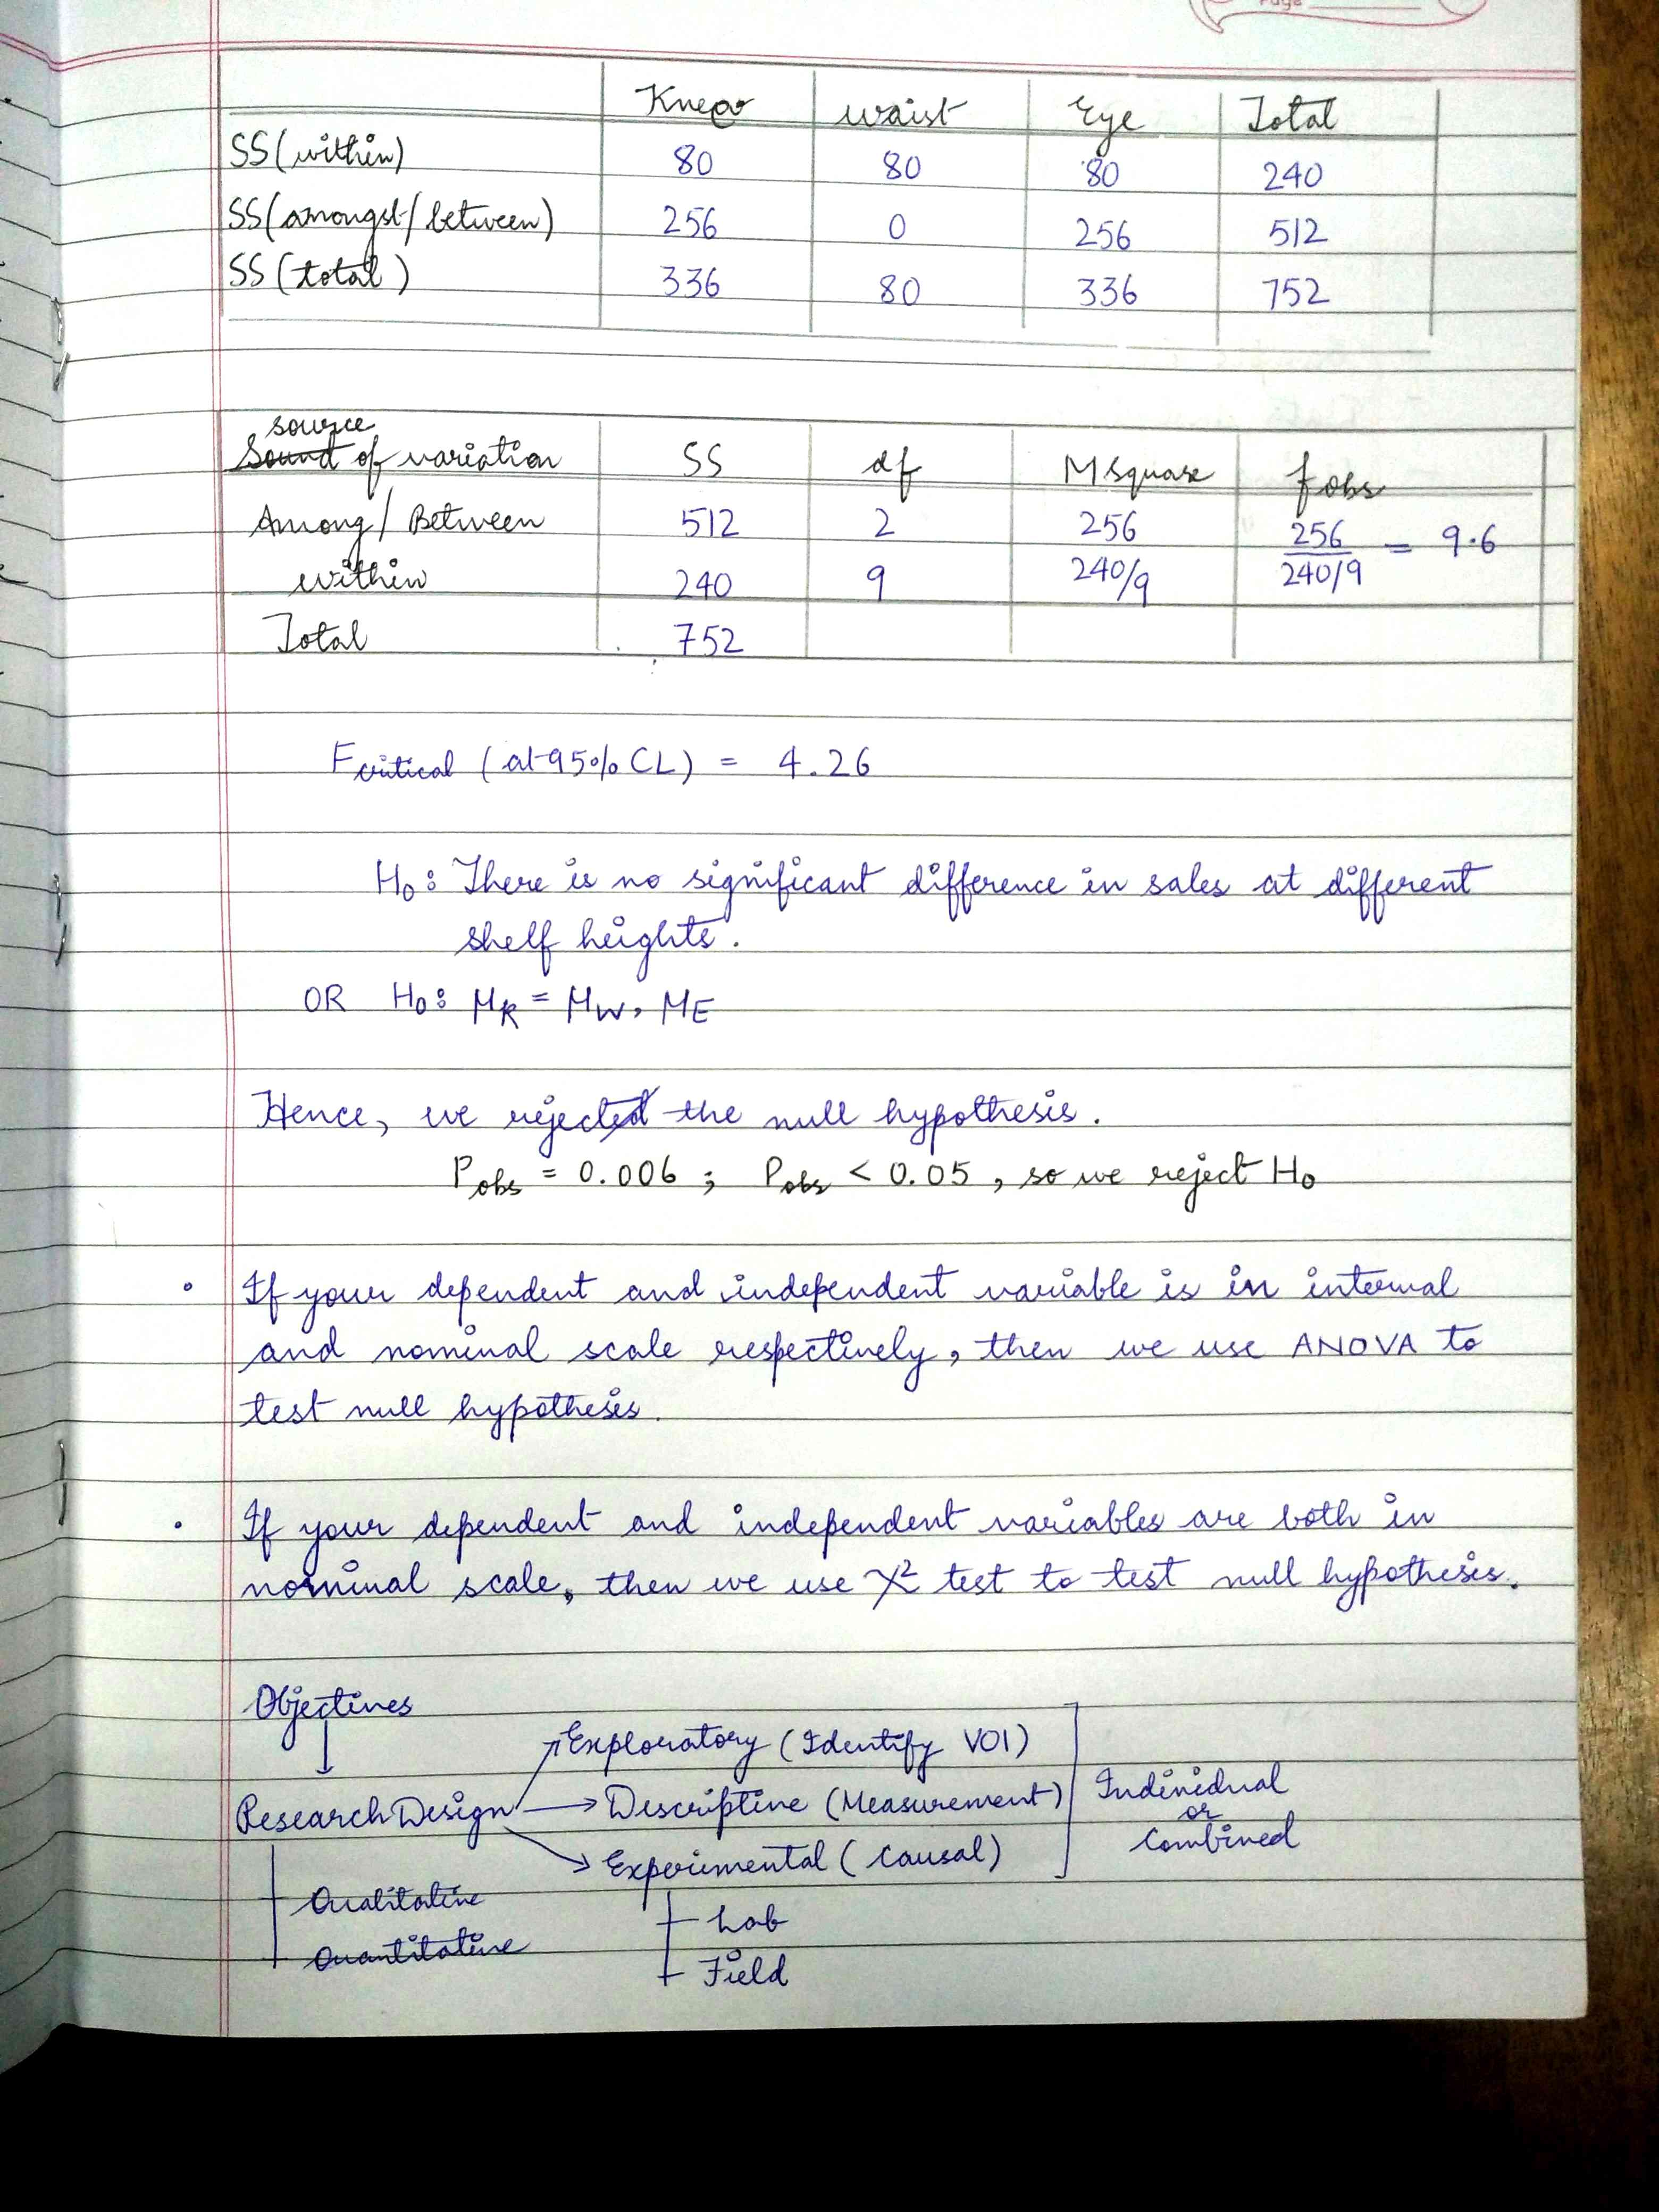 Page
Knee Waist Eye Total
SS (within) 80 80 80 240
SS (amongst/between) 256 0 256 512
SS (total) 336 80 336 752
source
Sound of variation SS df M square fobs
Among/Between 512 2 256 256/240/9 = 9.6
within 240 9 240/9
Total 752
Fcritical (at 95% CL) = 4.26
H0: There is no significant difference in sales at different
shelf heights.
OR H0: μK = μW, μE
Hence, we rejected the null hypothesis.
Pobs = 0.006 ; Pobs < 0.05, so we reject H0
• If your dependent and independent variable is in interval
and nominal scale respectively, then we use ANOVA to
test null hypothesis.
• If your dependent and independent variables are both in
nominal scale, then we use χ² test to test null hypothesis.
Objectives
Exploratory (Identify VOI)
Research Design → Descriptive (Measurement) Individual
or
Combined
Experimental (Causal)
Qualitative
Lab
Quantitative
Field